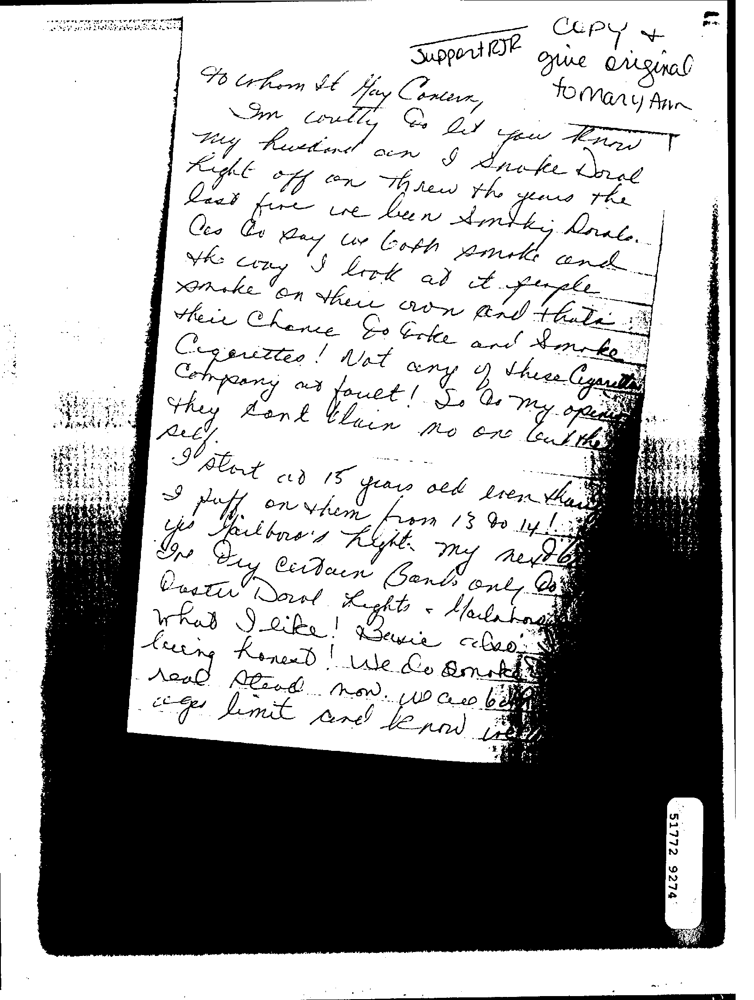 Support RJR
Copy +
give original
to Mary Ann
To whom It May Concern,
Im to let you know
my husband an I Smoke Doral
Light off an Threw the years the
last five we been Smoking Dorals.
to say we both smoke and
the way I look at it people
smoke on there own and thats
their Chance to take and Smoke
Cigerettes! Not any of these
Company at fault! So as my
they dont blain no one but
self.
I start at 15 years old even
I puff on them from 13 to 14!
yes Light. my
Try Certain Bands only to
Doral Lights
what I like! Basic also
being honest! We do smoke
real now. we are
ages limit and know
51772 9274